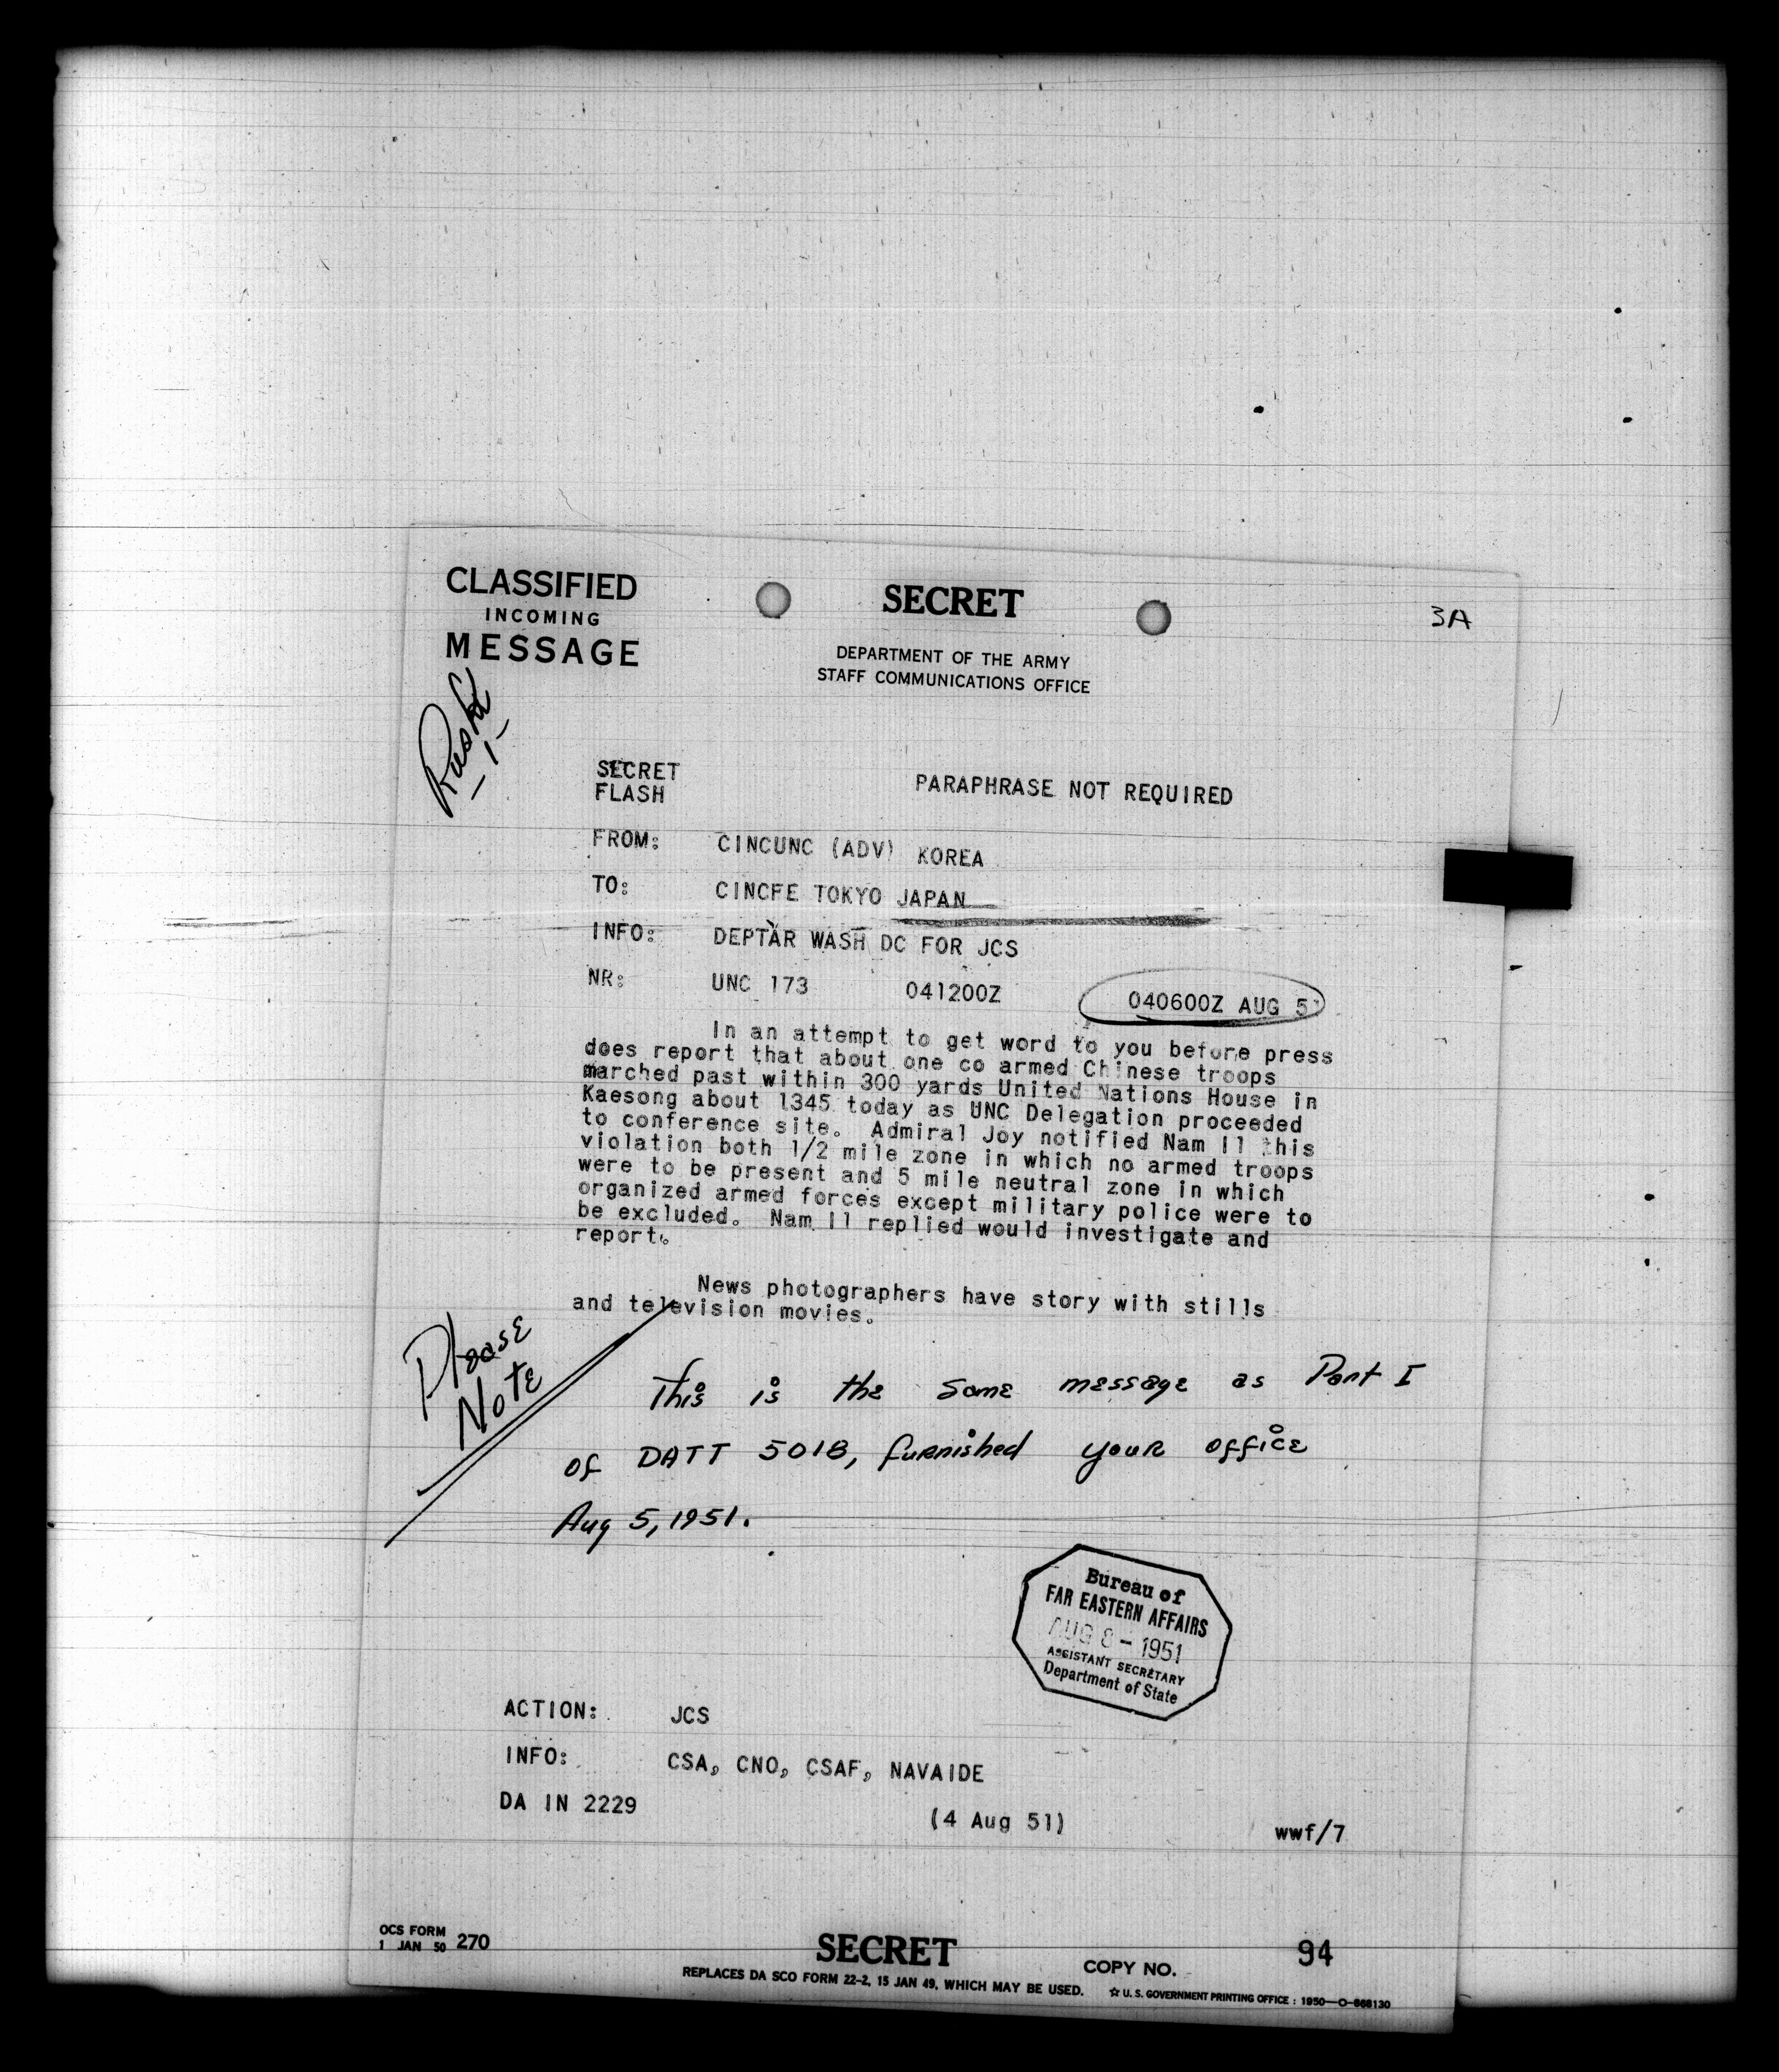 CLASSIFIED
INCOMING
MESSAGE
SECRET
3A
DEPARTMENT OF THE ARMY
STAFF COMMUNICATIONS OFFICE
Rusk
SECRET
FLASH
PARAPHRASE NOT REQUIRED
FROM: CINCUNC (ADV) KOREA
TO: CINCFE TOKYO JAPAN
INFO: DEPTAR WASH DC FOR JCS
NR: UNC 173 041200Z 040600Z AUG 51
In an attempt to get word to you before press
does report that about one co armed Chinese troops
marched past within 300 yards United Nations House in
Kaesong about 1345 today as UNC Delegation proceeded
to conference site. Admiral Joy notified Nam Il this
violation both 1/2 mile zone in which no armed troops
were to be present and 5 mile neutral zone in which
organized armed forces except military police were to
be excluded. Nam Il replied would investigate and
report.
News photographers have story with stills
and television movies.
Please
Note
This is the same message as Part I
of DATT 5018, furnished your office
Aug 5, 1951.
Bureau of
FAR EASTERN AFFAIRS
AUG 8 - 1951
ASSISTANT SECRETARY
Department of State
ACTION: JCS
INFO: CSA, CNO, CSAF, NAVAIDE
DA IN 2229 (4 Aug 51) wwf/7
OCS FORM
1 JAN 50 270
SECRET
COPY NO. 94
REPLACES DA SCO FORM 22-2, 15 JAN 49, WHICH MAY BE USED.
☆ U. S. GOVERNMENT PRINTING OFFICE : 1950—O-868130